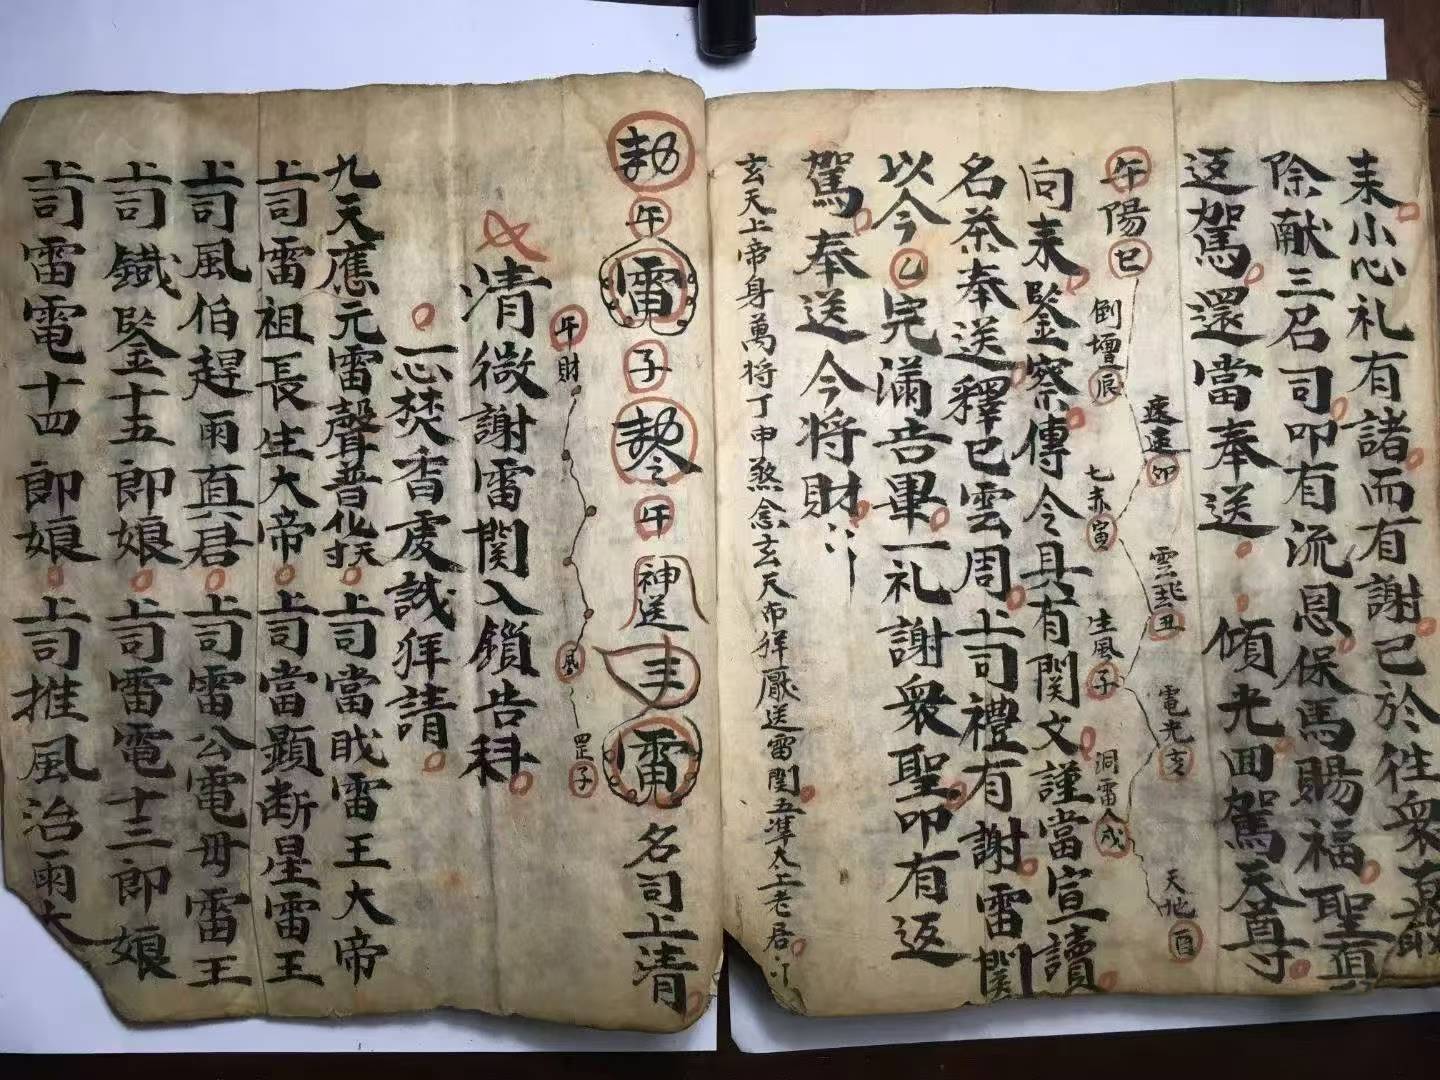 耒小心礼有諸而有謝已於徃衆真
除献三召司叩有流恩保馬賜福聖真
返駕還當奉送傾光回駕天尊
午陽巳
倒壇辰
速速卯
七未寅
雲起丑
生風子
電光亥
洞雷人戌
天地酉
向耒鑒察傳令具有関文謹當宣讀
名茶奉送釋巳雲周上司禮有謝雷関
以今乙完滿告畢一礼謝衆聖叩有返
駕奉送今将財
玄天上帝身萬将丁申煞念玄天布拜厭送雷関五準太上老君
勅午雷子勅令午神送雷名司上清
午財
風
罡子
清微謝雷関入鎖告科
一心焚香虔誠拜請
九天應元雷聲普化天尊上司當戝雷王大帝
上司雷祖長生大帝上司當顕断星雷王
上司風伯趕雨真君上司雷公電毋雷王
上司鐵鑒十五郎娘上司雷電十三郎娘
上司雷電十四郎娘上司推風治雨大